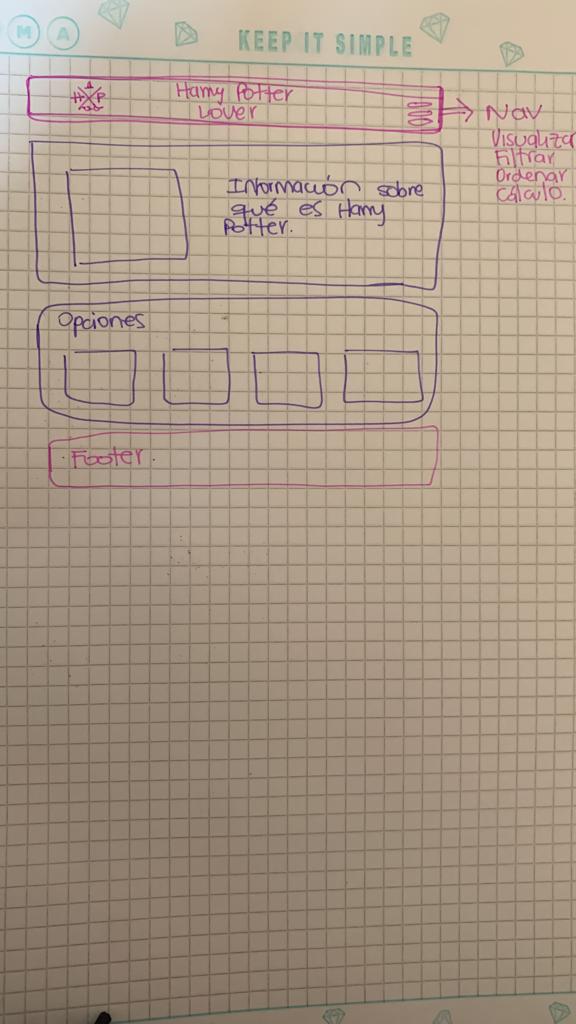 M A
KEEP IT SIMPLE
Harry Potter
Lover
H P
Nav
Visualizar
Filtrar
Ordenar
Cálculo.
Información sobre
qué es Harry
Potter.
Opciones
Footer.